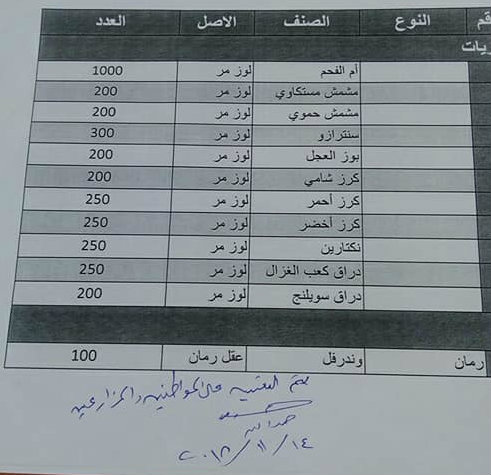 قم النوع الصنف الاصل العدد
يات
أم الفحم لوز مر 1000
مشمش مستكاوي لوز مر 200
مشمش حموي لوز مر 200
سنترازو لوز مر 300
بوز العجل لوز مر 200
كرز شامي لوز مر 200
كرز أحمر لوز مر 250
كرز أخضر لوز مر 250
نكتارين لوز مر 250
دراق كعب الغزال لوز مر 250
دراق سويلنج لوز مر 200
رمان وندرفل عقل رمان 100
على المواطنين والمزارعين
٢٠١٨/١١/١٤